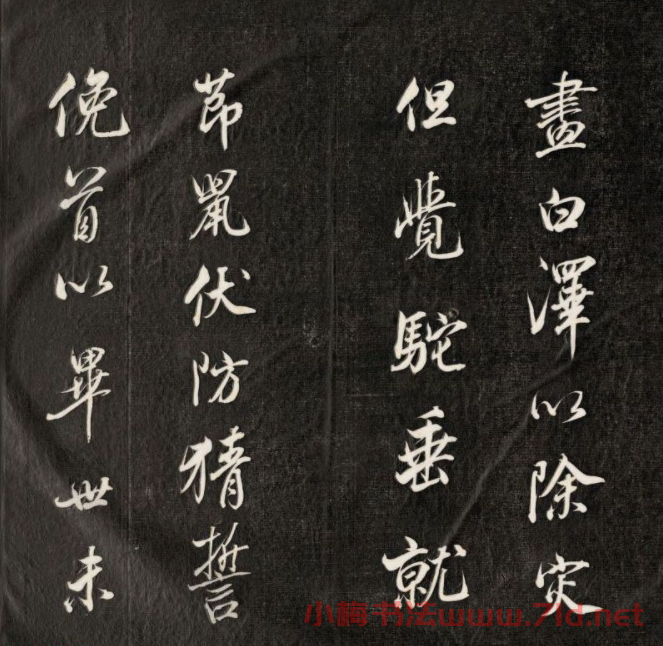 畫白澤以除定
但覺駝垂就
茆鼠伏防猜誓
俛首以畢世未
小梅书法www.7ld.net